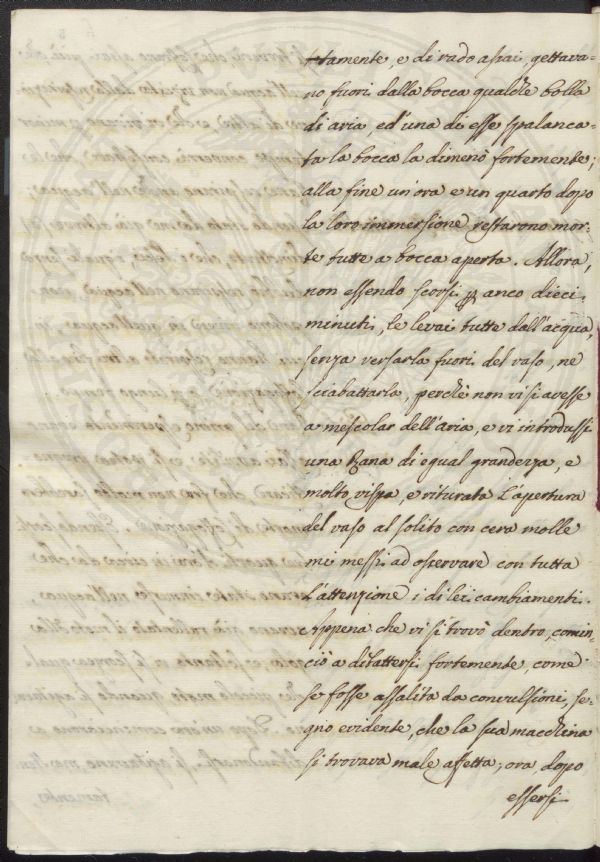 tamente, e di rado assai, gettava-
no fuori dalla bocca qualche bolla
di aria, ed una di esse spalanca-
ta la bocca la dimenò fortemente;
alla fine un'ora e un quarto dopo
la loro immersione restarono mor-
te tutte a bocca aperta. Allora,
non essendo scorsi anco dieci
minuti, le levai tutte dall'acqua,
senza versarla fuori del vaso, ne
sciabattarla, perchè non vi si avesse
a mescolar dell'aria, e vi introdussi
una Rana di egual grandezza, e
molto vispa, e riturata l'apertura
del vaso al solito con cera molle
mi messi ad osservare con tutta
l'attenzione i di lei cambiamenti.
Appena che vi si trovò dentro, comin-
ciò a dibattersi fortemente, come
se fosse assalita da convulsioni, se-
gno evidente, che la sua macchina
si trovava male affetta; ora, dopo
essersi